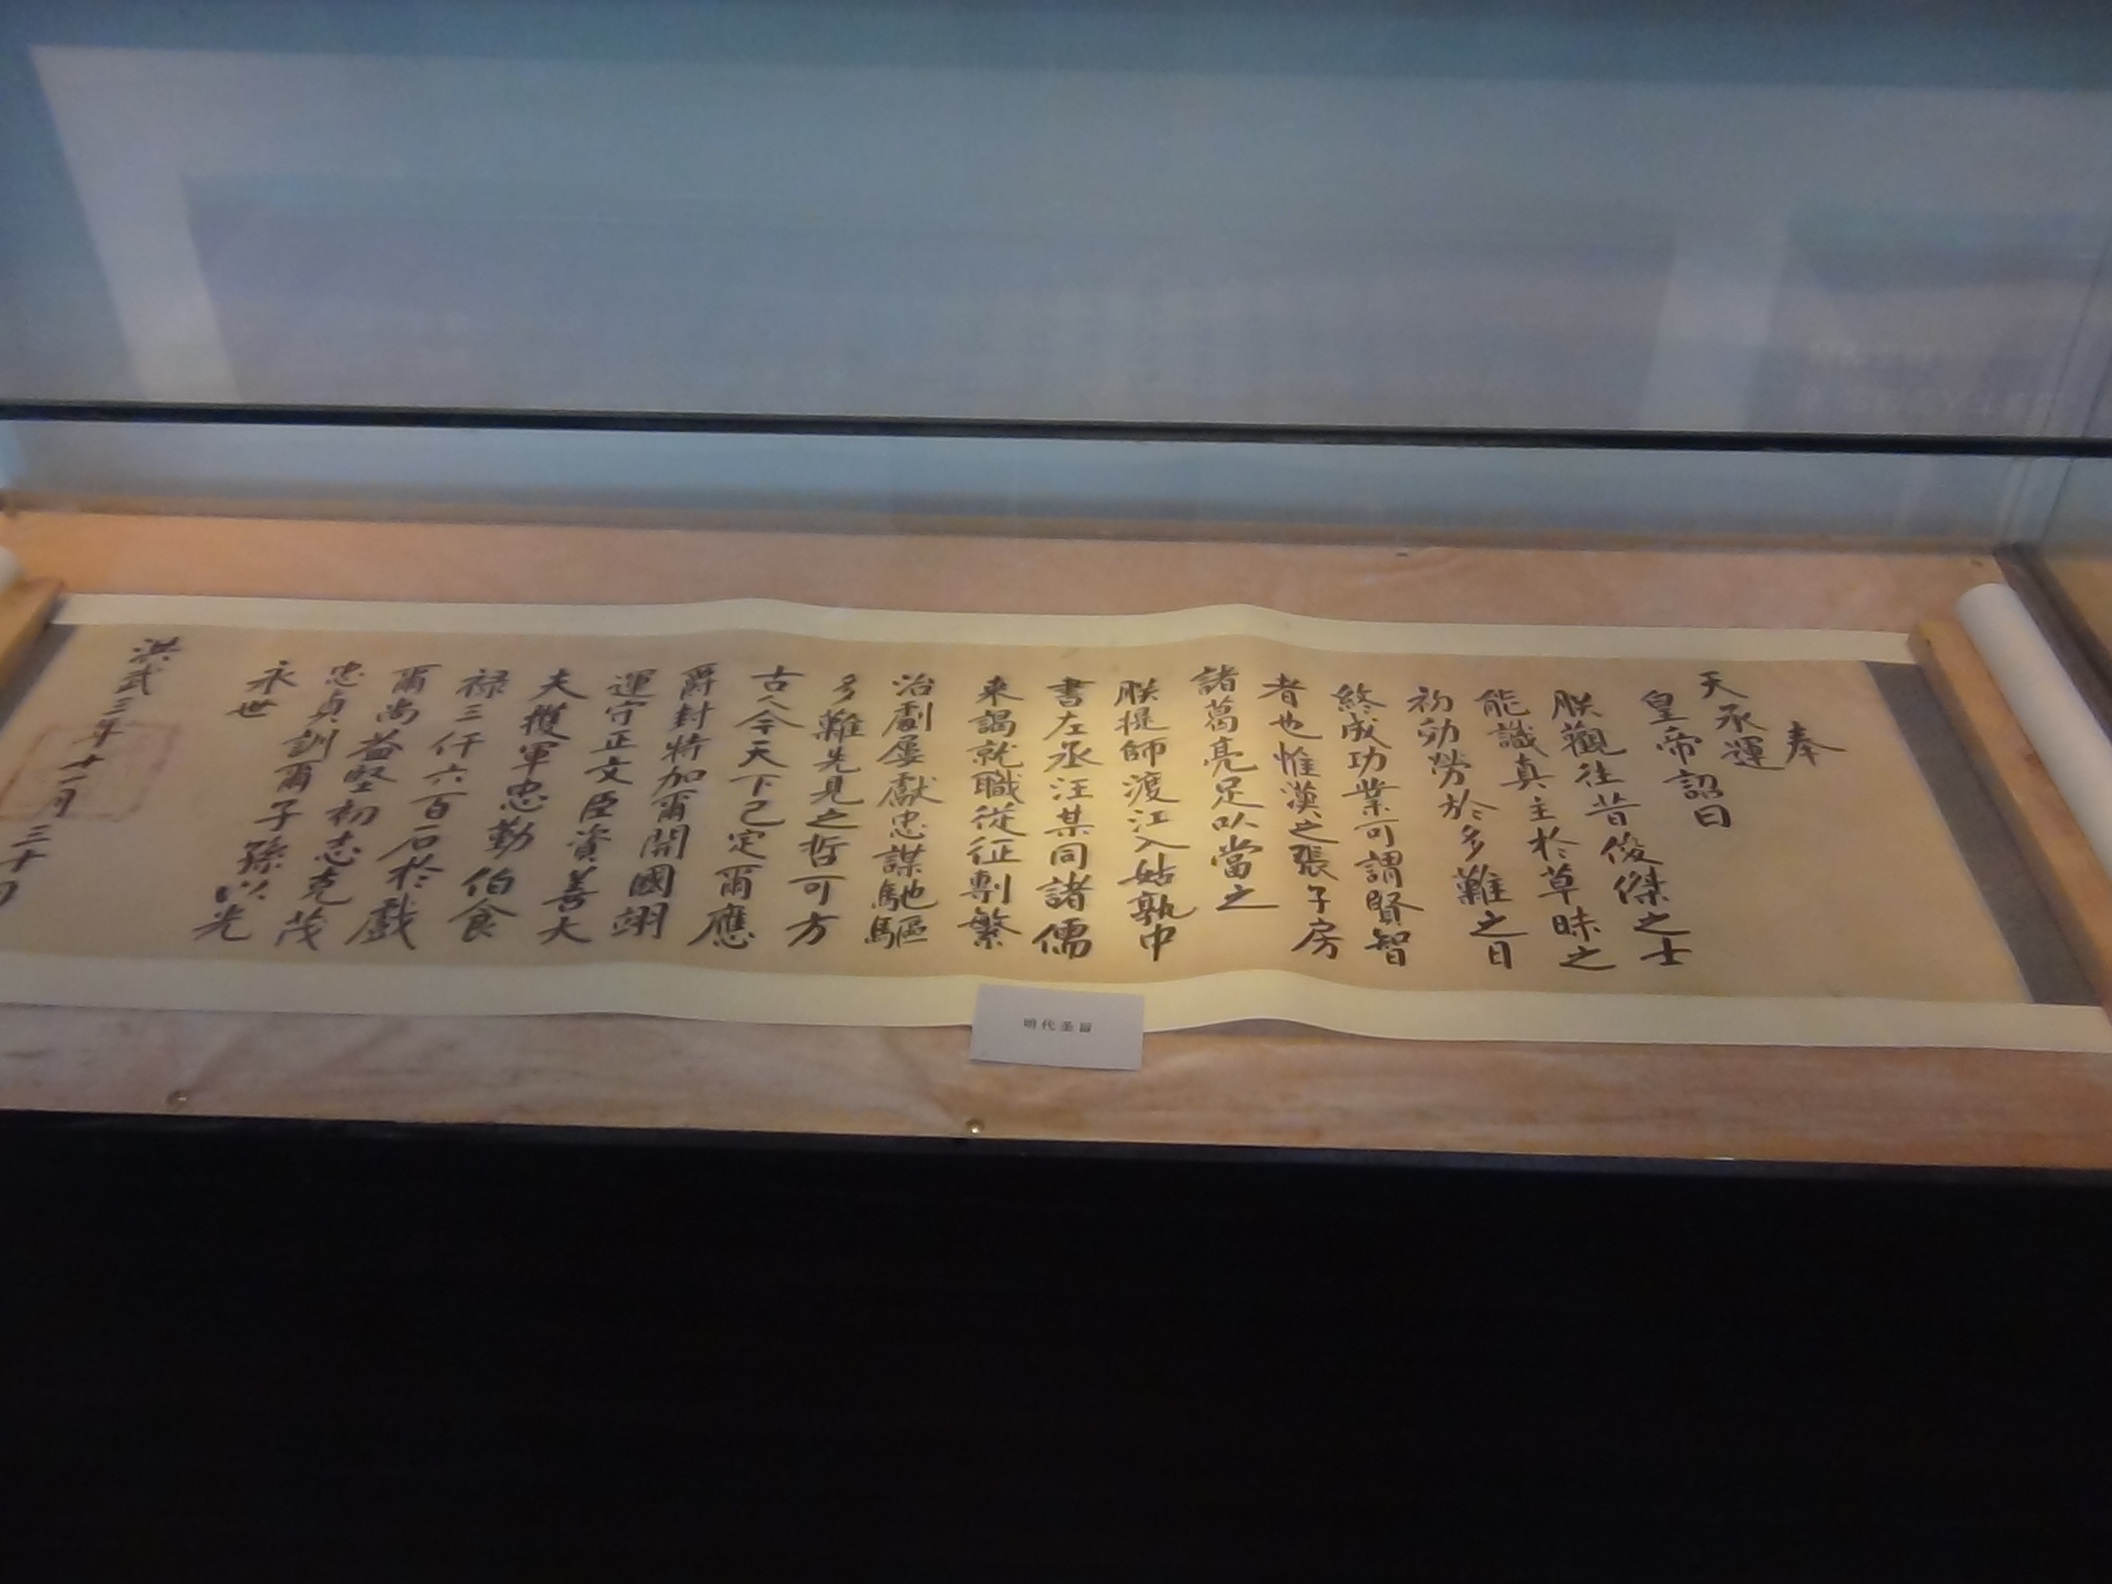 奉
天承運
皇帝詔曰
朕觀往昔俊傑之士
能識真主於草昧之
初効勞於多難之日
終成功業可謂賢智
者也惟漢之張子房
諸葛亮足以當之
朕提師渡江入姑孰中
書左丞汪某同諸儒
来謁就職從征剸繁
治劇屡獻忠謀馳驅
多難先見之哲可方
古人今天下已定爾應
爵封特加爾開國翊
運守正文臣資善大
夫獲軍忠勤伯食
禄三仟六百石於戲
爾尚益堅初志克茂
忠貞訓爾子孫以光
永世
洪武三年十一月三十
明代圣旨